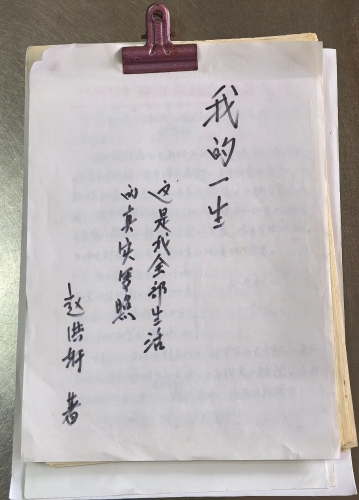 我的一生
这是我全部生活
的真实写照
赵洪轩 著